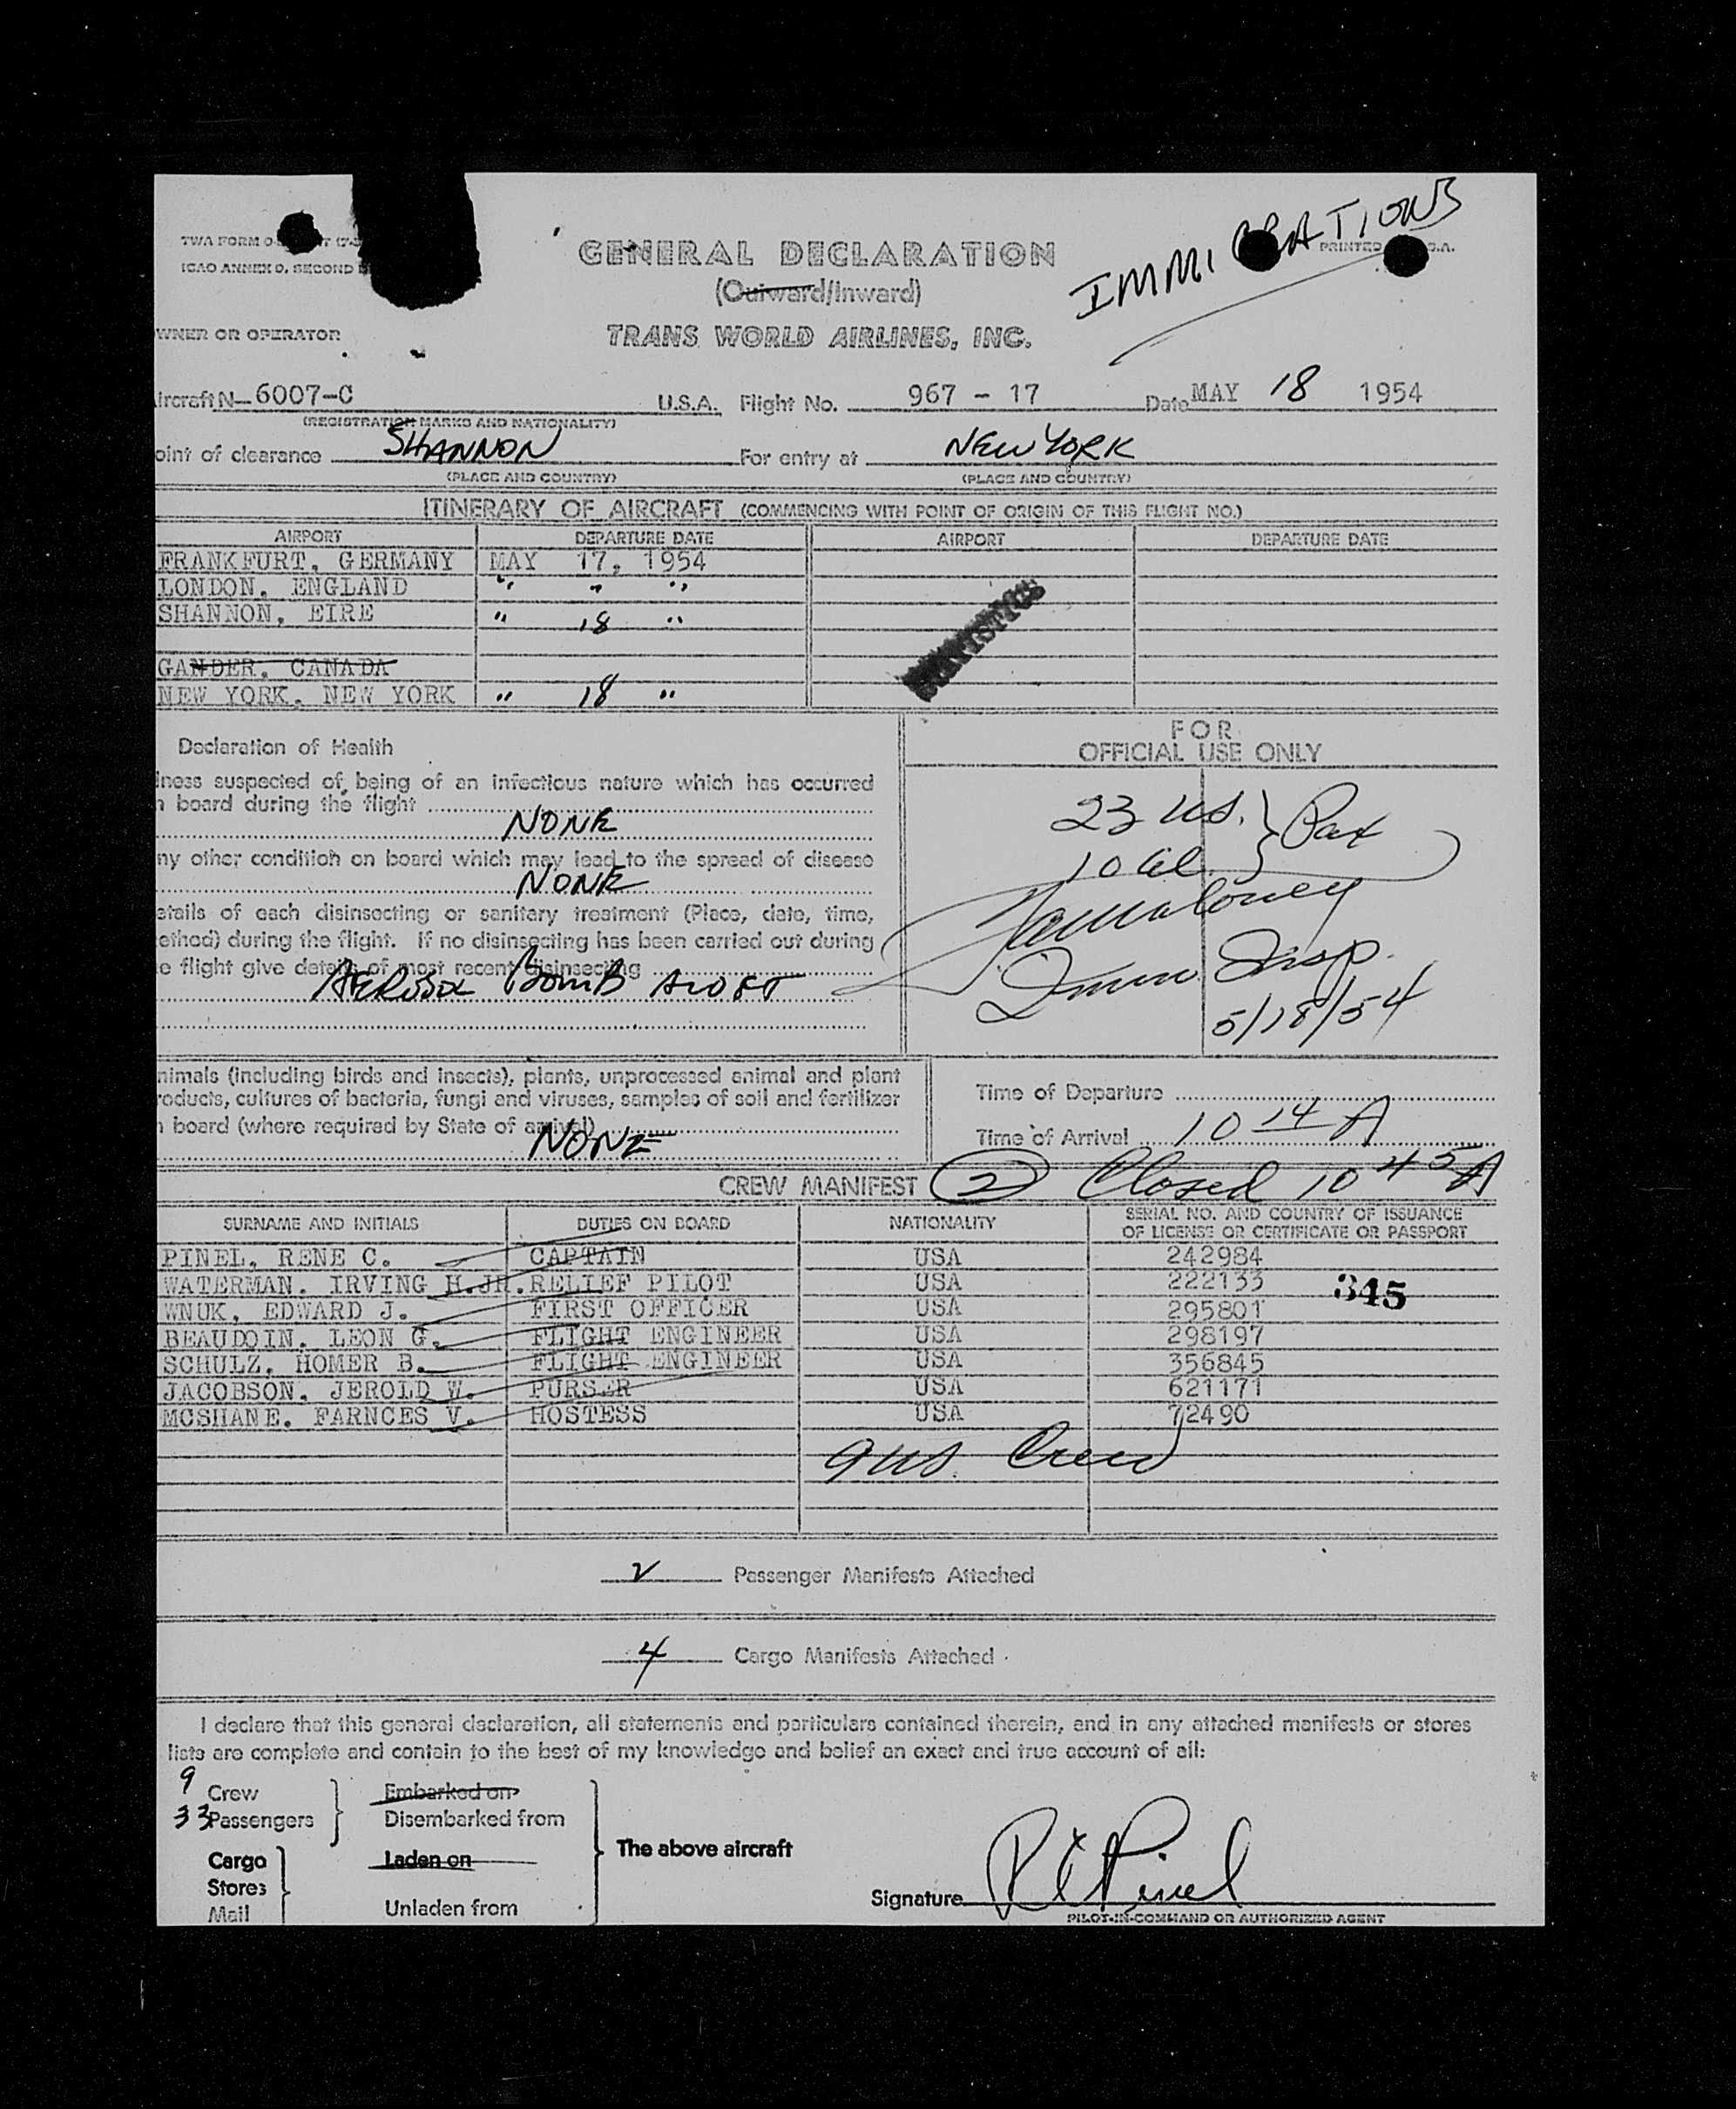 IMMIGRATIONS
TWA FORM O-
PRINTED
S.A.
ICAO ANNEX 9, SECOND
GENERAL DECLARATION
(Outward/Inward)
WNER OR OPERATOR
TRANS WORLD AIRLINES, INC.
ircraft N- 6007-C U.S.A. Flight No. 967 - 17 Date MAY 18 1954
(REGISTRATION MARKS AND NATIONALITY)
oint of clearance SHANNON For entry at NEW YORK
(PLACE AND COUNTRY) (PLACE AND COUNTRY)
ITINERARY OF AIRCRAFT (COMMENCING WITH POINT OF ORIGIN OF THIS FLIGHT NO.)
AIRPORT DEPARTURE DATE AIRPORT DEPARTURE DATE
FRANKFURT, GERMANY MAY 17, 1954
LONDON, ENGLAND " " "
SHANNON, EIRE " 18 "
GANDER, CANADA
NEW YORK, NEW YORK " 18 "
STATISTICS
Declaration of Health
lness suspected of being of an infectious nature which has occurred
n board during the flight
NONE
ny other condition on board which may lead to the spread of disease
NONE
etails of each disinsecting or sanitary treatment (Place, date, time,
ethod) during the flight. If no disinsecting has been carried out during
e flight give details of most recent disinsecting
AEROSOL BOMB
FOR
OFFICIAL USE ONLY
23 US. } Pax
10 al.
Immn. Insp.
5/18/54
nimals (including birds and insects), plants, unprocessed animal and plant
roducts, cultures of bacteria, fungi and viruses, samples of soil and fertilizer
n board (where required by State of arrival)
NONE
Time of Departure
Time of Arrival 10 14 A
CREW MANIFEST (2) Closed 10 45 A
SURNAME AND INITIALS DUTIES ON BOARD NATIONALITY SERIAL NO. AND COUNTRY OF ISSUANCE
OF LICENSE OR CERTIFICATE OR PASSPORT
PINEL, RENE C. CAPTAIN USA 242984
WATERMAN, IRVING H.JR. RELIEF PILOT USA 222133
345
WNUK, EDWARD J. FIRST OFFICER USA 295801
BEAUDOIN, LEON G. FLIGHT ENGINEER USA 298197
SCHULZ, HOMER B. FLIGHT ENGINEER USA 356845
JACOBSON, JEROLD W. PURSER USA 621171
MCSHANE, FARNCES V. HOSTESS USA 72490
9 US. Crew
2 Passenger Manifests Attached
4 Cargo Manifests Attached
I declare that this general declaration, all statements and particulars contained therein, and in any attached manifests or stores
lists are complete and contain to the best of my knowledge and belief an exact and true account of all:
9 Crew
33 Passengers
Embarked on
Disembarked from
Cargo
Stores
Mail
Laden on
Unladen from
The above aircraft
Signature R C Pinel
PILOT-IN-COMMAND OR AUTHORIZED AGENT